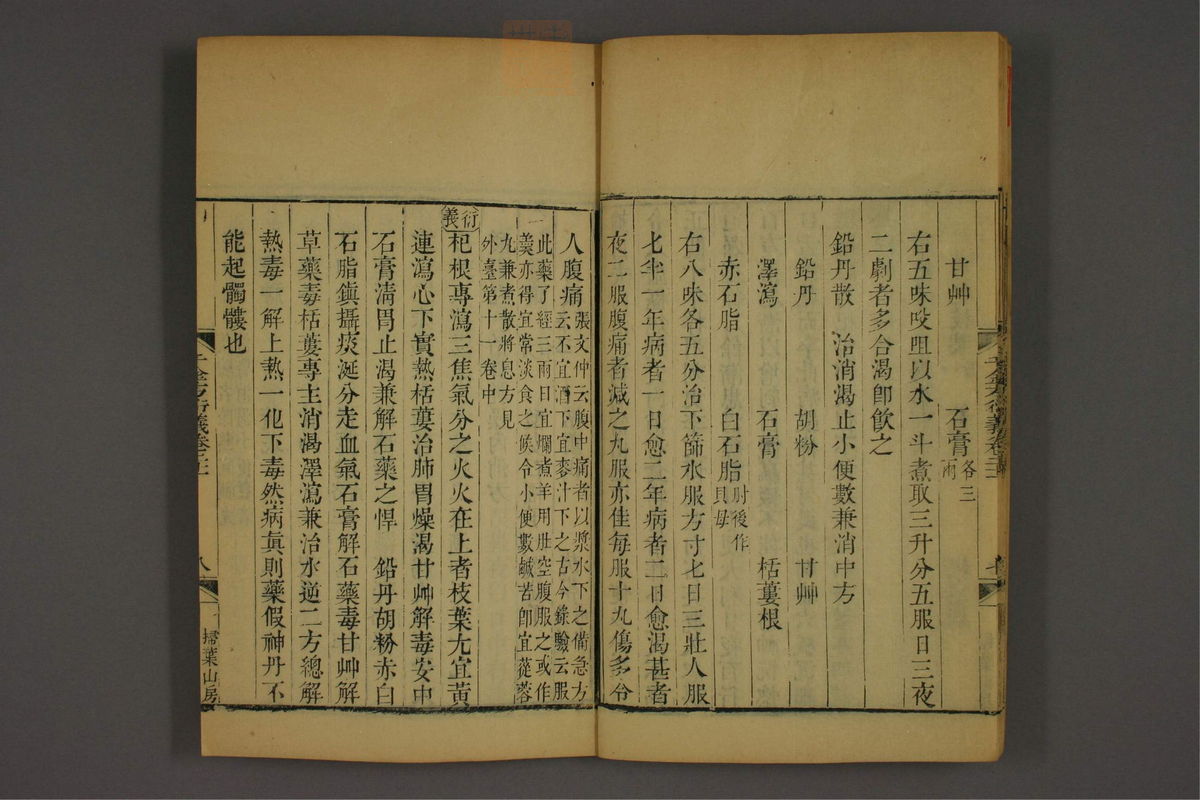 甘艸 石膏各三兩
右五味㕮咀以水一斗煮取三升分五服日三夜
二劇者多合渴卽飮之
鉛丹散 治消渴止小便數兼消中方
鉛丹 胡粉 甘艸
澤瀉 石膏 栝蔞根
赤石脂 白石脂肘後作貝母
右八味各五分治下篩水服方寸匕日三壯人服
七半一年病者一日愈二年病者二日愈渴甚者
夜二服腹痛者減之丸服亦佳每服十丸傷多令
人腹痛張文仲云腹中痛者以漿水下之備急方
云不宜酒下宜麥汁下之古今錄驗云服
此藥了經三兩日宜爛煮羊用肚空腹服之或作
羹亦得宜常淡食之候令小便數鹹苦卽宜蓯蓉
丸兼煮散將息方見
外臺第十一卷中
衍義
杞根專瀉三焦氣分之火火在上者枝葉尤宜黃
連瀉心下實熱栝蔞治肺胃燥渴甘艸解毒安中
石膏淸胃止渴兼解石藥之悍 鉛丹胡粉赤白
石脂鎮攝痰涎分走血氣石膏解石藥毒甘艸解
草藥毒栝蔞專主消渴澤瀉兼治水逆二方總解
熱毒一解上熱一化下毒然病眞則藥假神丹不
能起髑髏也
千金方衍義卷
八
掃葉山房